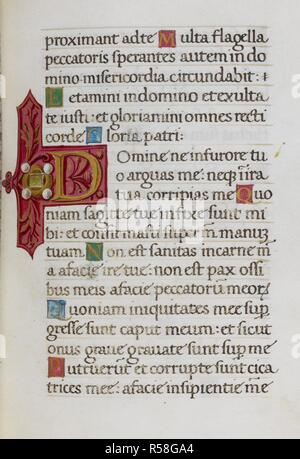 proximant ad te Multa flagella
peccatoris sperantes autem in do
mino misericordia circundabit: +
Letamini in domino et exulta
te iusti: et gloriamini omnes recti
corde Gloria patri:
Domine ne in furore tu
o arguas me: neq in ira
tua corripias me Quo
niam sagitte tue infixe sunt mi
bi: et super manuz
tuam Non est sanitas in carne m̄
a a facie ire tue: non est pax ossi
bus meis a facie peccatorū meoꝝ
Quoniam iniquitates mee sup
gresse sunt caput meum: et sicut
onus graue grauate sunt sup me
Putruerūt et corrupte sunt cica
trices mee: a facie insipientie m̄e
alamy
Image ID: R58GA4
www.alamy.com